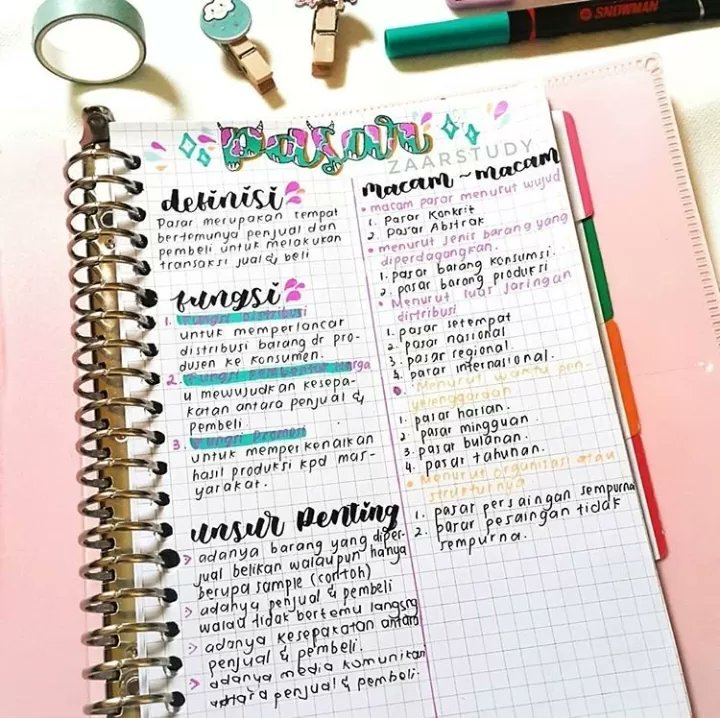 SNOWMAN
pasar
ZAARSTUDY
definisi
Pasar merupakan tempat
bertemunya penjual dan
pembeli untuk melakukan
transaksi jual & beli
fungsi
1. Fungsi Distribusi
untuk memperlancar
distribusi barang dr pro-
dusen ke konsumen.
2. Fungsi Pembentuk Harga
u mewujudkan kesepa-
katan antara penjual &
pembeli
3. Fungsi Promosi
untuk memperkenalkan
hasil produksi kpd mas-
yarakat.
unsur penting
> adanya barang yang diper-
jual belikan walaupun hanya
berupa sample (contoh)
> adanya penjual & pembeli
walau tidak bertemu langsng
> adanya kesepakatan antara
penjual & pembeli.
> adanya media komunikan
antara penjual & pembeli.
macam ~ macam
• macam pasar menurut wujud
1. Pasar Konkrit
2. Pasar Abstrak
• menurut jenis barang yang
diperdagangkan.
1. pasar barang konsumsi.
2. pasar barang produksi
• Menurut luas jaringan
distribusi
1. pasar setempat
2. pasar nasional
3. pasar regional.
4. parar internasional.
• Menurut waktu pen-
yelenggaraan
1. pasar harian.
2. pasar mingguan.
3. pasar bulanan.
4. pasar tahunan.
• Menurut organisasi atau
strukturnya
1. pasar persaingan sempurna
2. parar pesaingan tidak
sempurna.